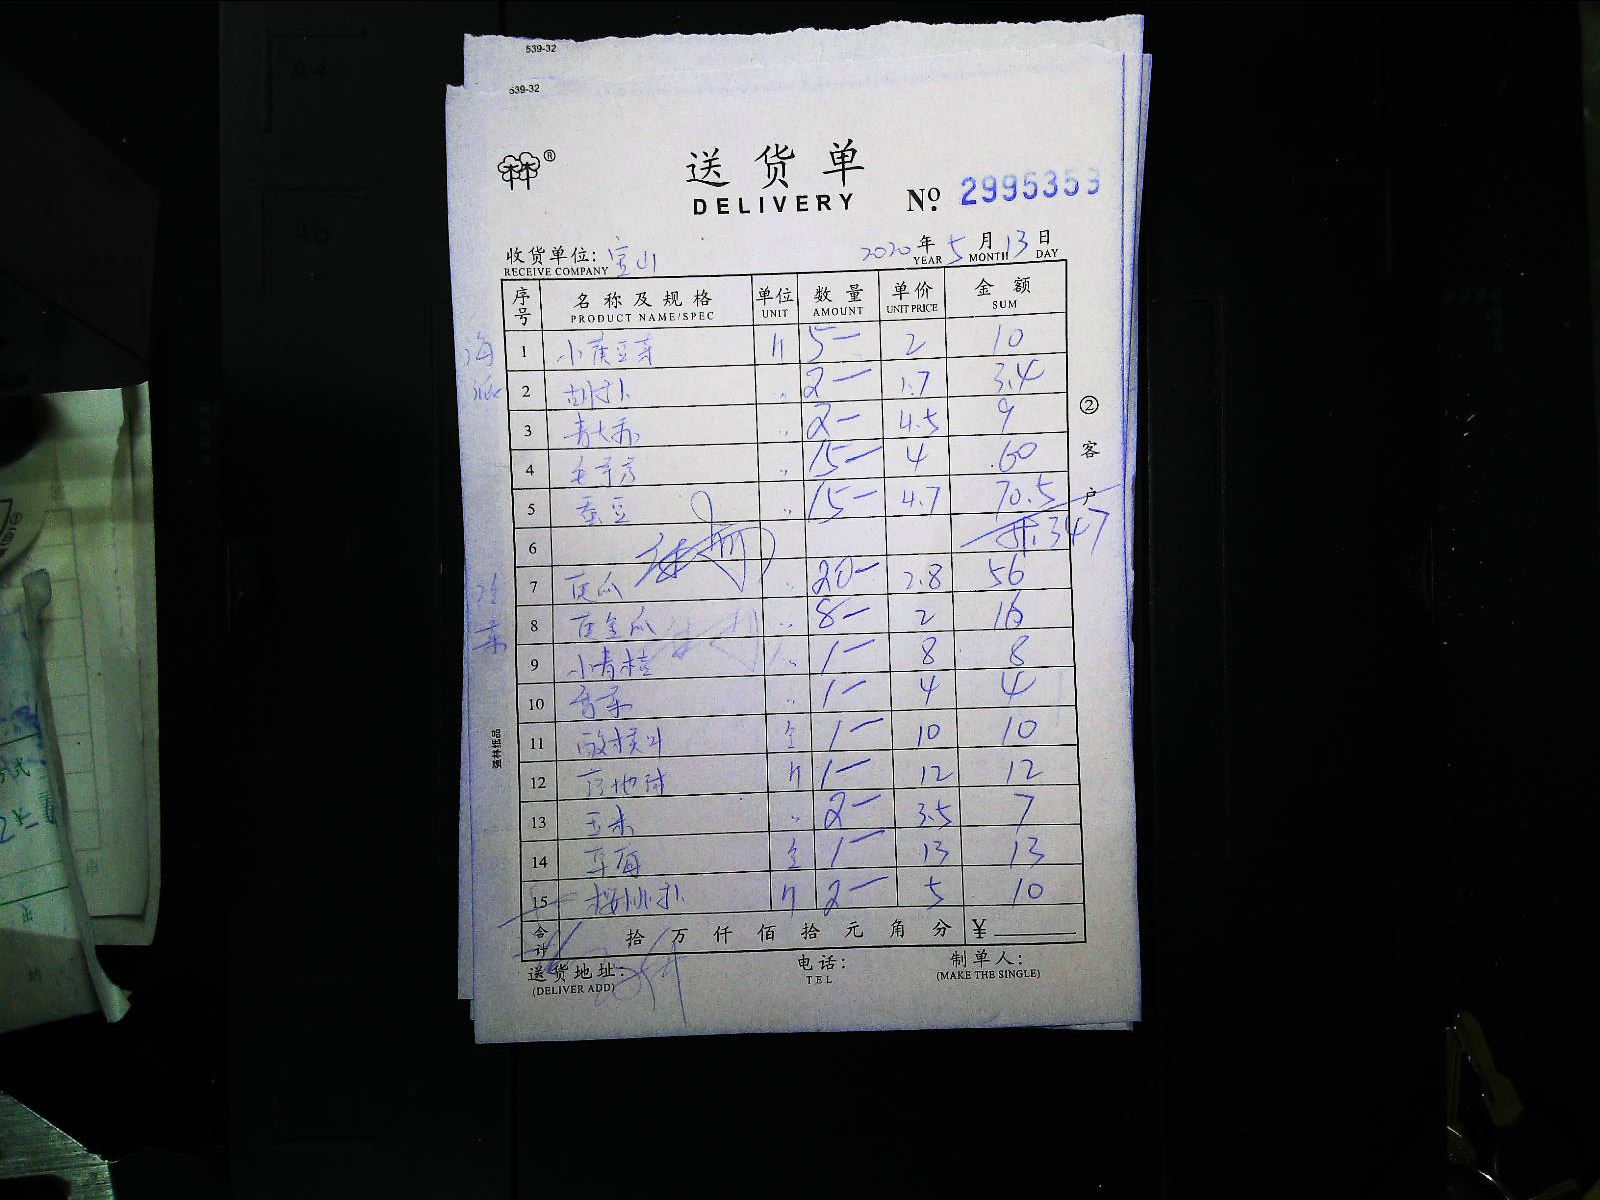 539-32
539-32
林®
送货单
DELIVERY
№ 2995359
收货单位: 宝山
RECEIVE COMPANY
2020年 5月 13日
YEAR MONTH DAY
序号 名称及规格 单位 数量 单价 金额
PRODUCT NAME/SPEC UNIT AMOUNT UNIT PRICE SUM
海派
1 小黄豆芽 斤 5— 2 10
2 〃 2— 1.7 3.4
3 〃 2— 4.5 9
4 〃 15— 4 60
5 蚕豆 〃 15— 4.7 70.5
6 347
7 瓜 〃 20— 2.8 56
8 黄金瓜 〃 8— 2 16
9 小青桔 〃 1— 8 8
10 香菜 〃 1— 4 4
11 酸模叶 盒 1— 10 10
12 斤 1— 12 12
13 玉米 〃 2— 3.5 7
14 草莓 盒 1— 13 13
15 樱桃 斤 2— 5 10
合计 拾 万 仟 佰 拾 元 角 分 ¥
送货地址:
(DELIVER ADD)
电话:
TEL
制单人:
(MAKE THE SINGLE)
②客户
强林纸品